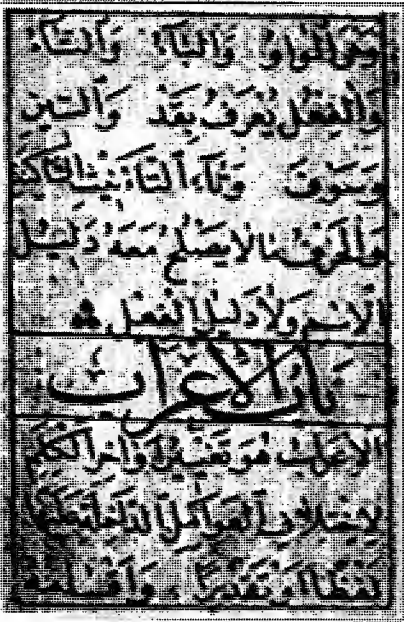 وهي الواو والباء والتاء
والفعل يعرف بقد والسين
وسوف وتاء التأنيث الساكنة
والحرف ما لا يصلح معه دليل
الاسم ولا دليل الفعل
باب الإعراب
الإعراب هو تغيير أواخر الكلم
لاختلاف العوامل الداخلة عليها
لفظا أو تقديرا وأقسامه